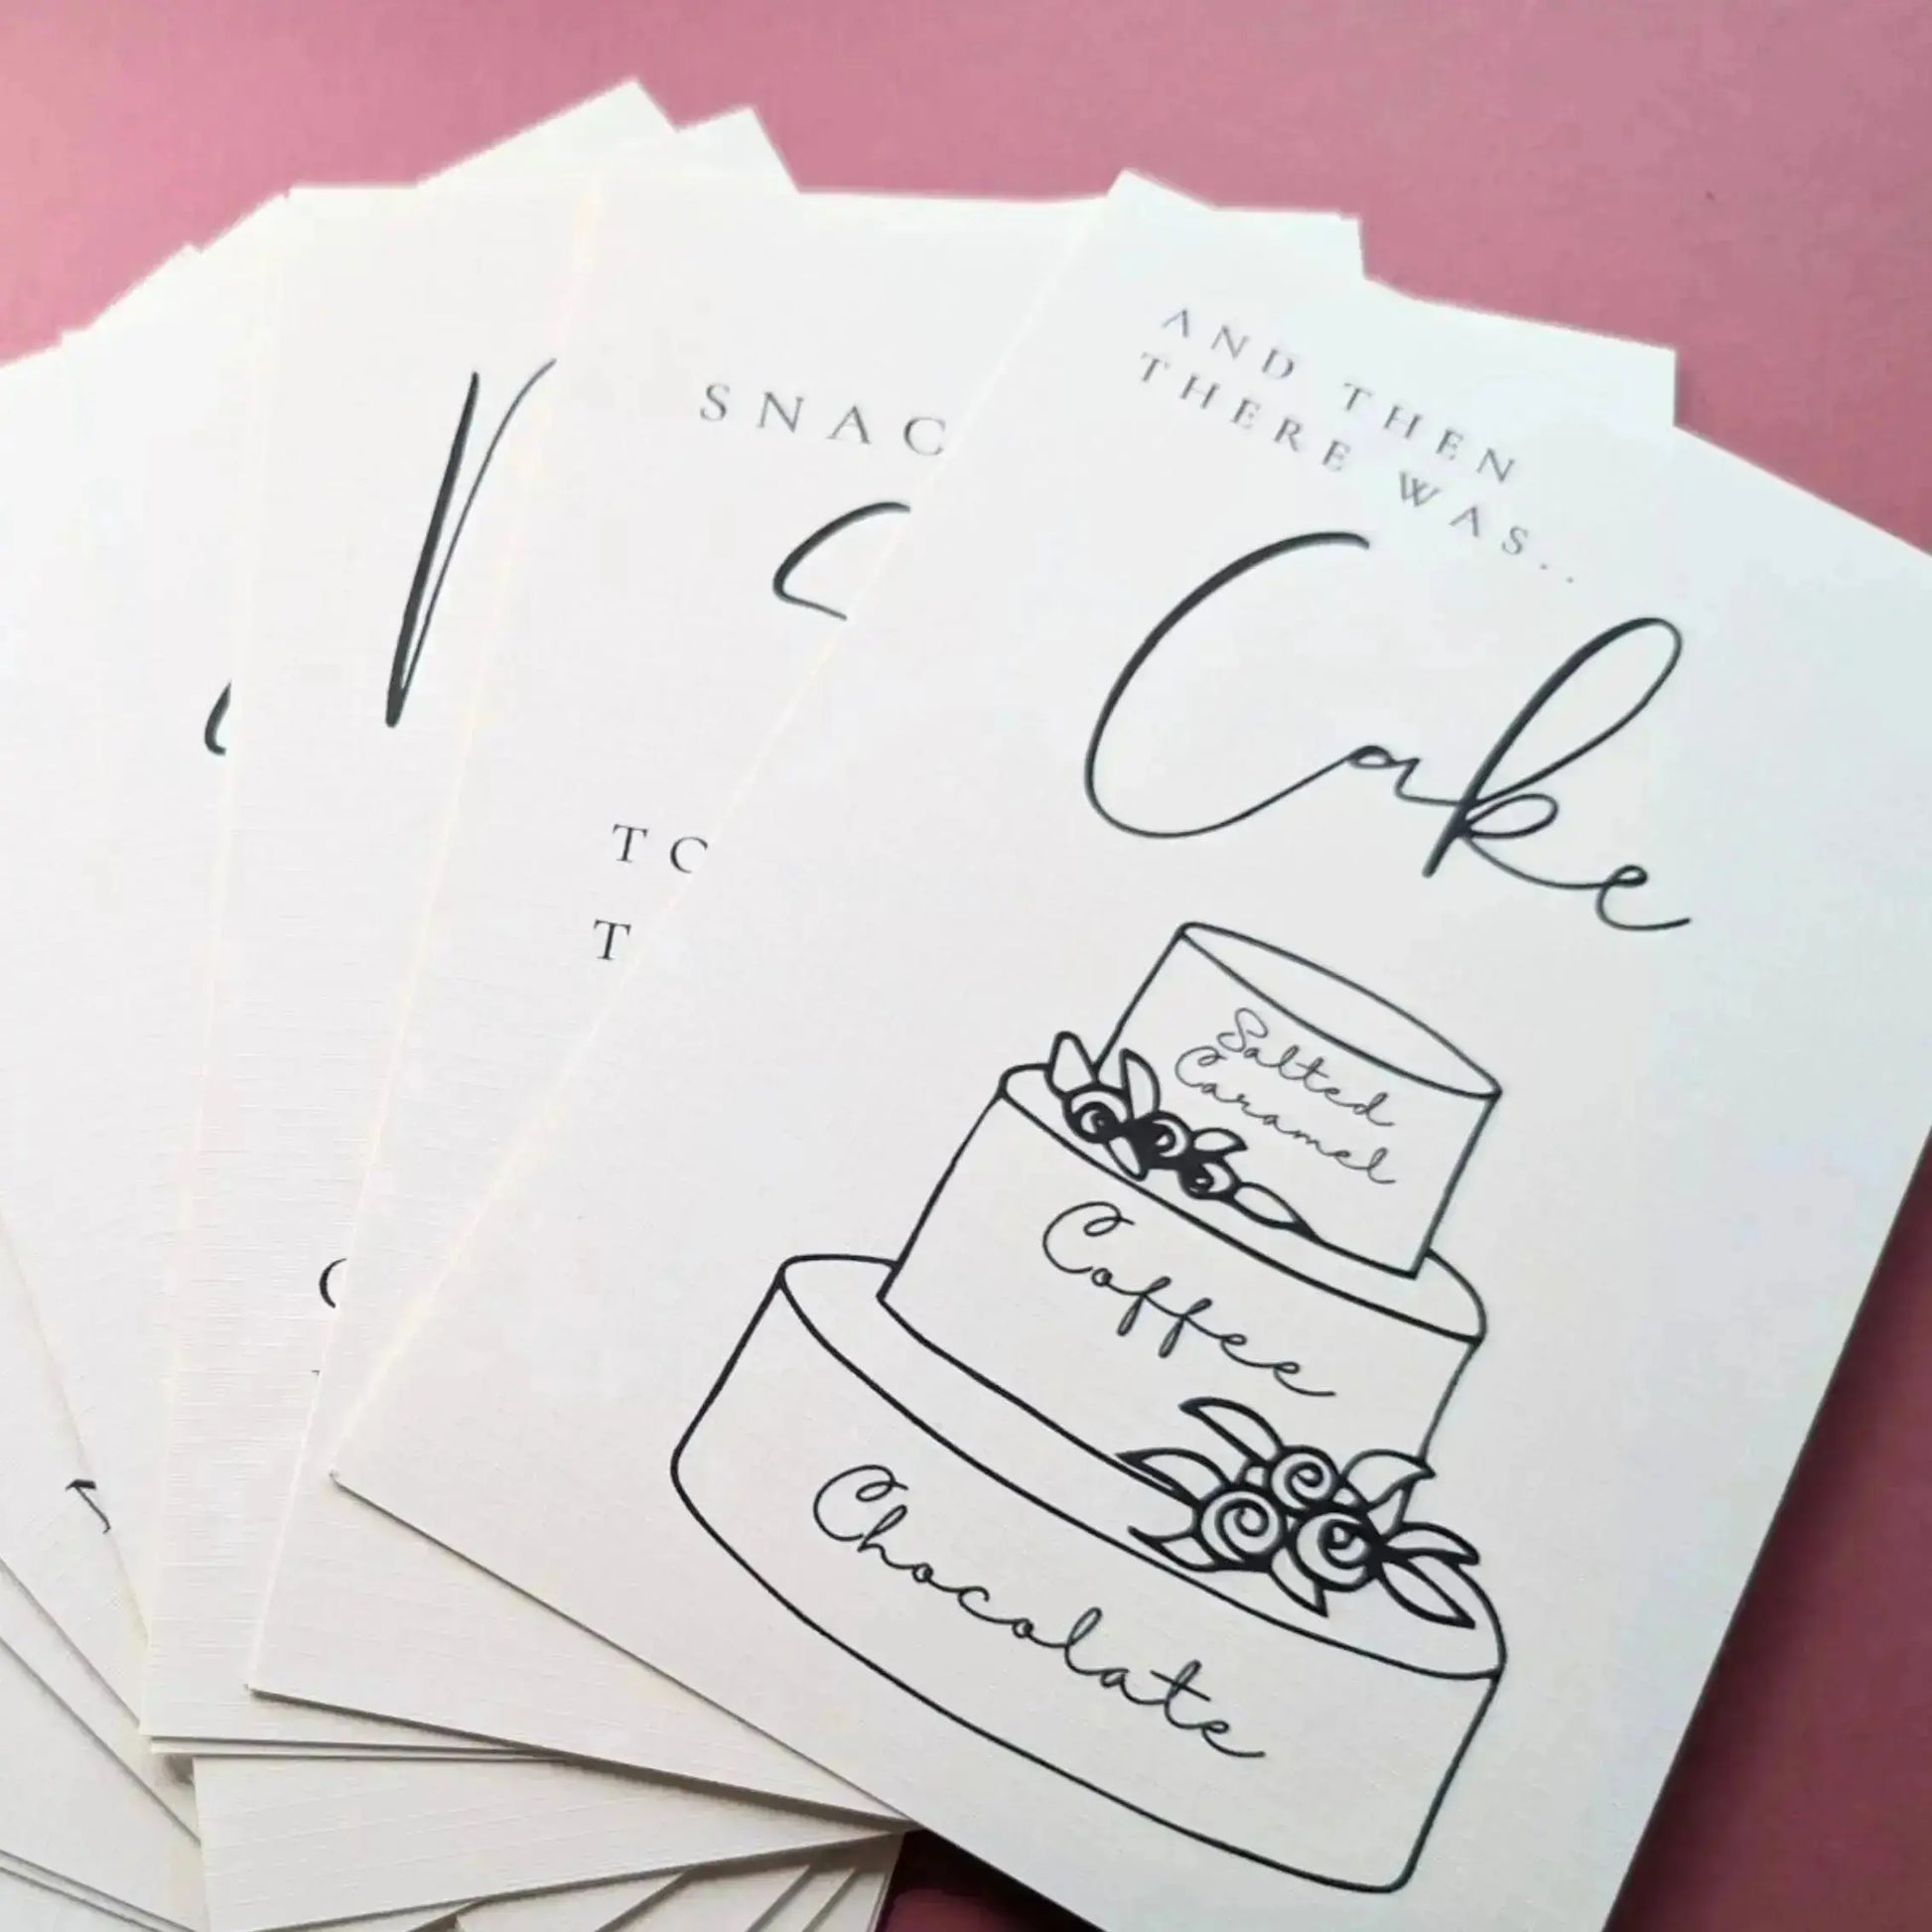 AND THEN
THERE WAS..
Cake
Salted
Caramel
Coffee
Chocolate